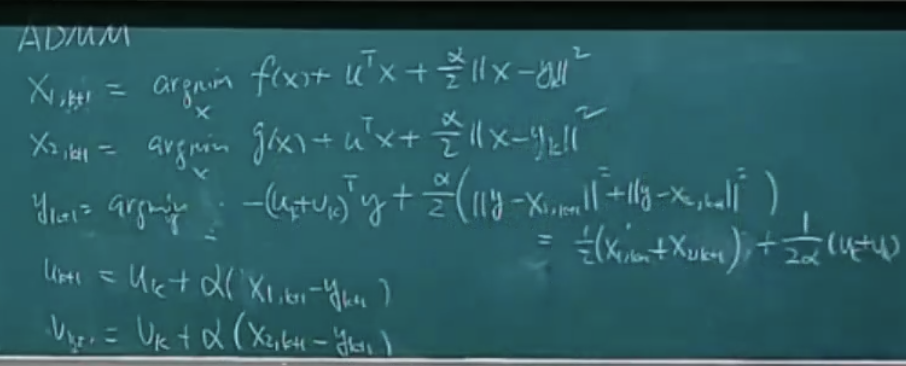 ADMM
x_{1,k+1} = argmin_x f(x) + u^T x + α/2 ||x - y_k||^2
x_{2,k+1} = argmin_x g(x) + u^T x + α/2 ||x - y_k||^2
y_{k+1} = argmin_y -(u_k+v_k)^T y + α/2 (||y - x_{1,k+1}||^2 + ||y - x_{2,k+1}||^2)
= 1/2 (x_{1,k+1} + x_{2,k+1}) + 1/2α (u_k+v_k)
u_{k+1} = u_k + α(x_{1,k+1} - y_{k+1})
v_{k+1} = v_k + α(x_{2,k+1} - y_{k+1})